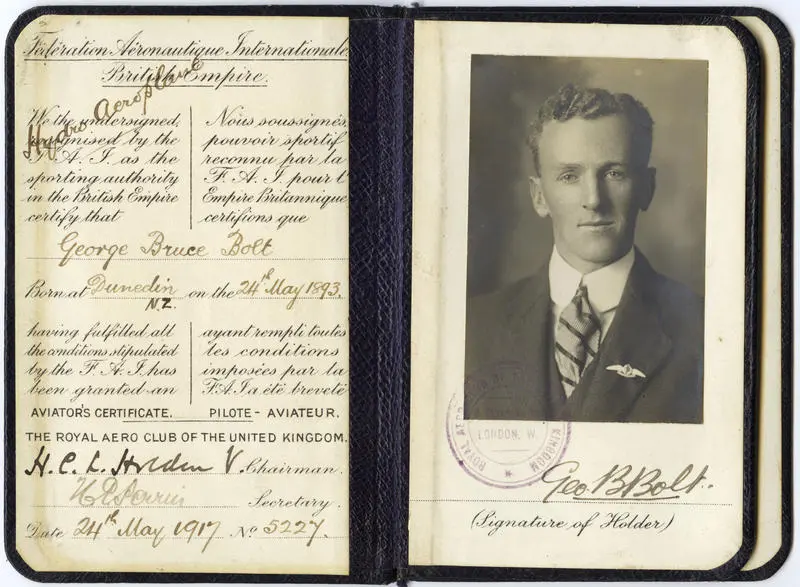 Fédération Aéronautique Internationale
British Empire.
Hydro Aeroplane
We the undersigned,
recognised by the
F. A. I. as the
sporting authority
in the British Empire
certify that
Nous soussignés,
pouvoir sportif
reconnu par la
F. A. I pour l'
Empire Britannique
certifions que
George Bruce Bolt
Born at Dunedin N.Z. on the 24th May 1893,
having fulfilled all
the conditions stipulated
by the F. A. I. has
been granted an
ayant rempli toutes
les conditions
imposées par la
F.A.I a été breveté
AVIATOR'S CERTIFICATE. PILOTE - AVIATEUR.
THE ROYAL AERO CLUB OF THE UNITED KINGDOM.
H. C. L. Holden V. Chairman.
H E Perrin Secretary.
Date 24th May 1917 No 5227.
ROYAL AERO
KINGDOM
LONDON, W.
Geo. B Bolt.
(Signature of Holder)